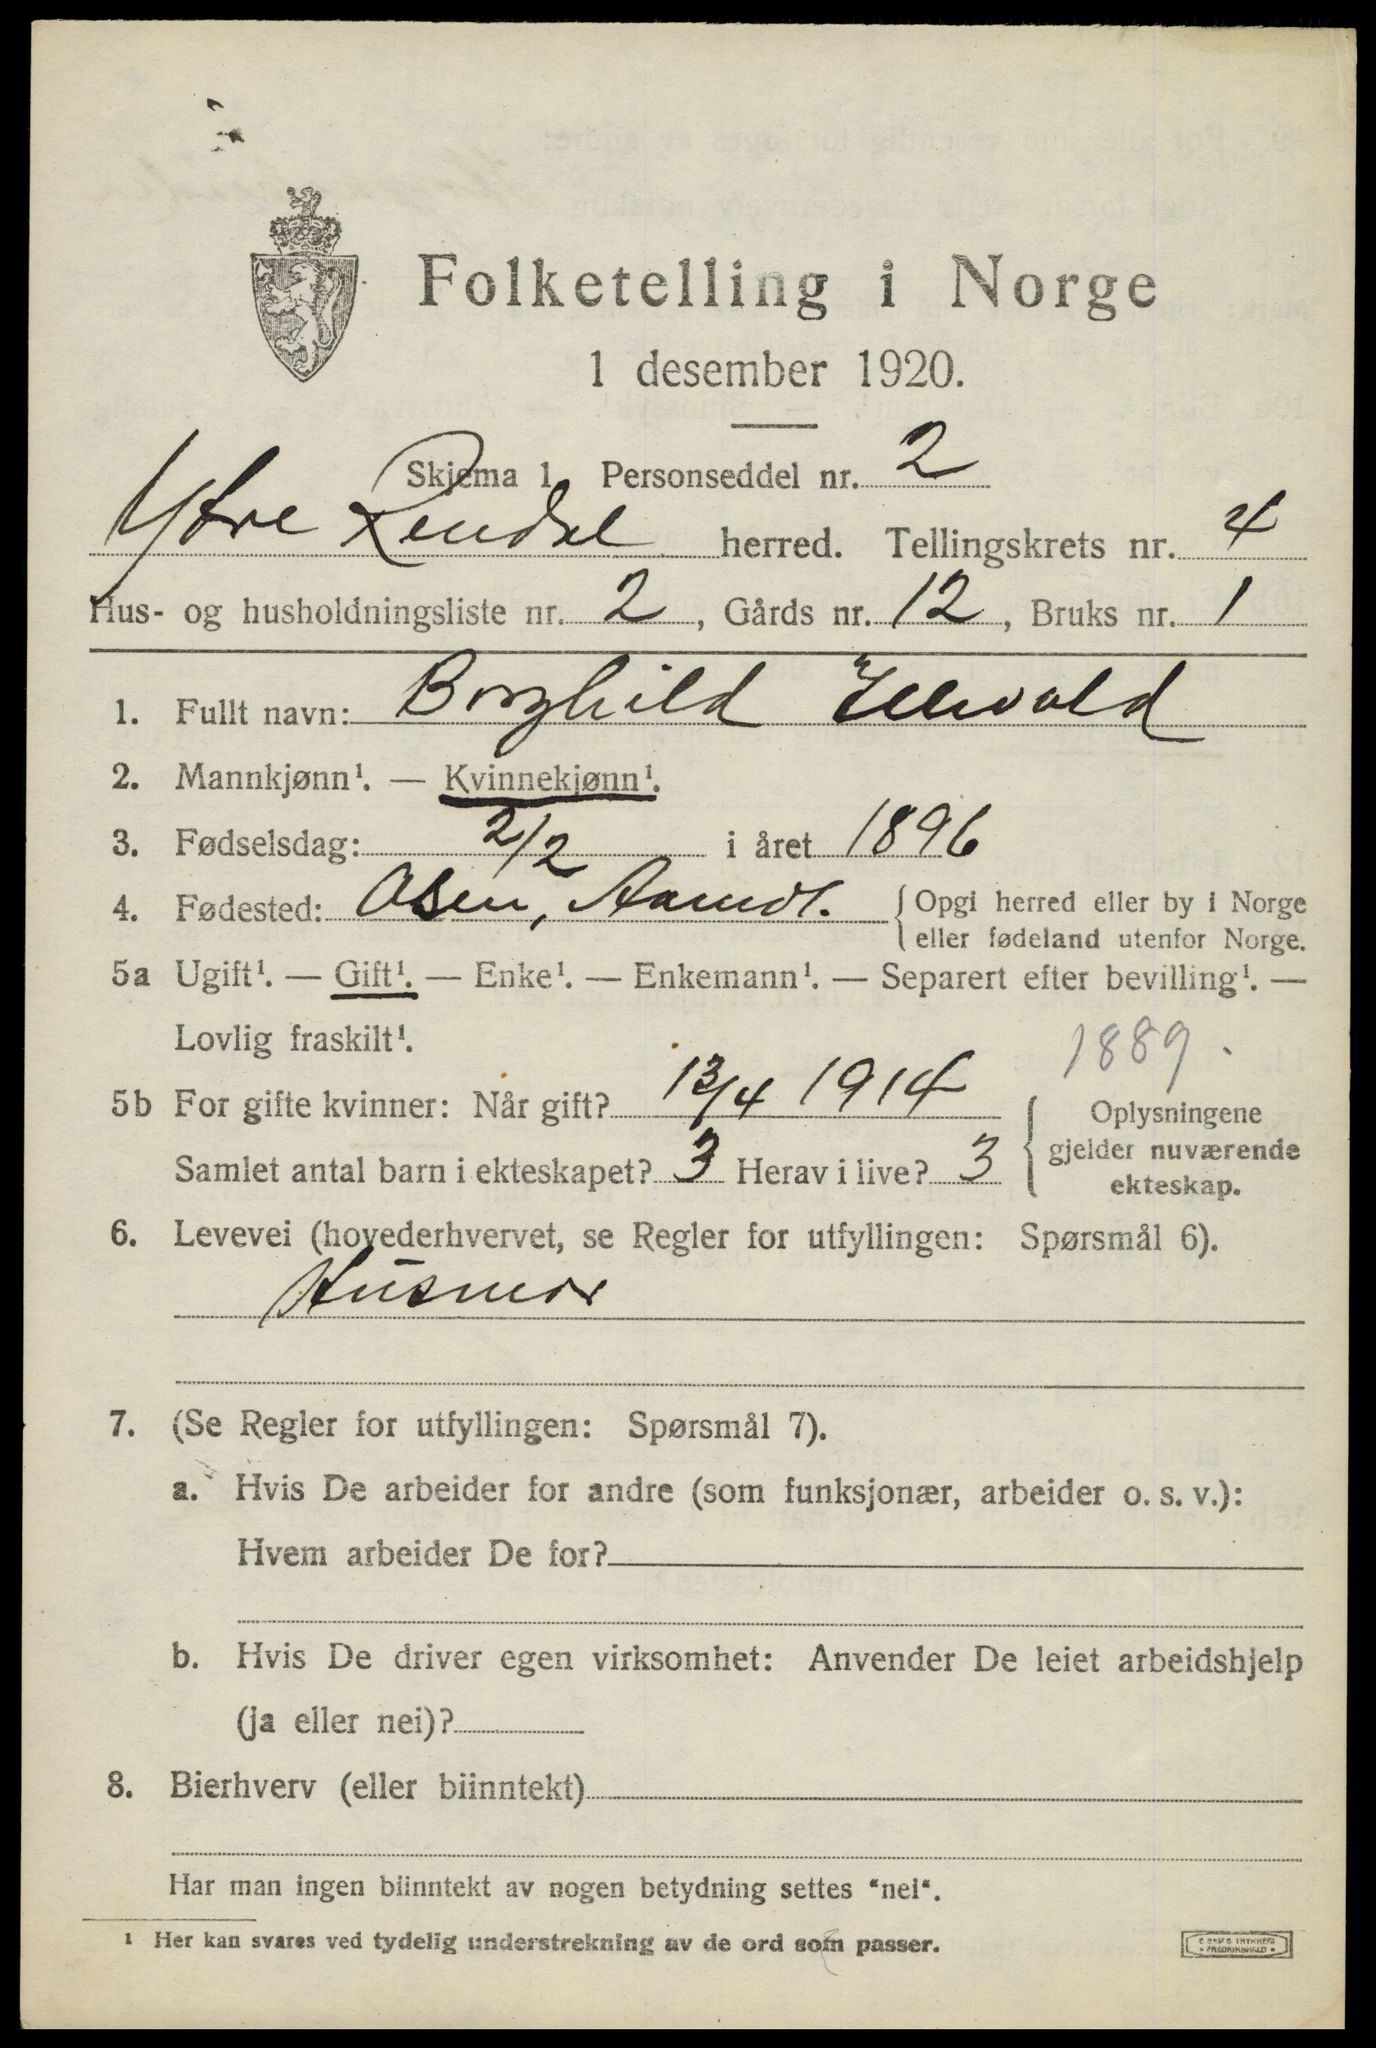 Folketelling i Norge
1 desember 1920.
Skjema 1 Personseddel nr. 2
Ytre Rendal herred. Tellingskrets nr. 4
Hus- og husholdningsliste nr. 2, Gårds nr. 12, Bruks nr. 1
1. Fullt navn: Borghild Ellevold
2. Mannkjønn¹. — Kvinnekjønn¹.
3. Fødselsdag: 2/2 i året 1896
4. Fødested: Aasen, Aamot. { Opgi herred eller by i Norge
eller fødeland utenfor Norge.
5a Ugift¹. — Gift¹. — Enke¹. — Enkemann¹. — Separert efter bevilling¹. —
Lovlig fraskilt¹.
1889.
5b For gifte kvinner: Når gift? 13/4 1914
Samlet antal barn i ekteskapet? 3 Herav i live? 3
{ Oplysningene
gjelder nuværende
ekteskap.
6. Levevei (hovederhvervet, se Regler for utfyllingen: Spørsmål 6).
Husmor
7. (Se Regler for utfyllingen: Spørsmål 7).
a. Hvis De arbeider for andre (som funksjonær, arbeider o. s. v.):
Hvem arbeider De for?
b. Hvis De driver egen virksomhet: Anvender De leiet arbeidshjelp
(ja eller nei)?
8. Bierhverv (eller biinntekt)
Har man ingen biinntekt av nogen betydning settes "nei".
¹ Her kan svares ved tydelig understrekning av de ord som passer.